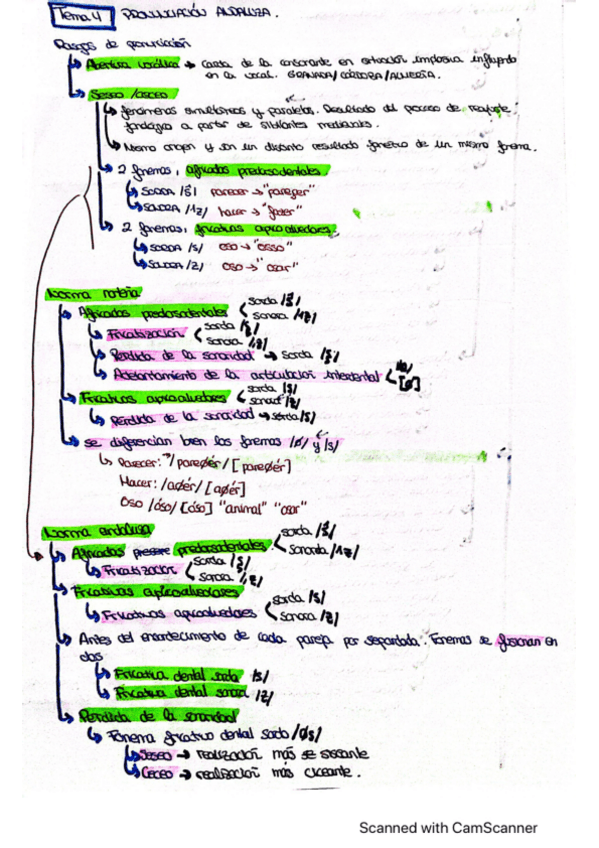 Tema 4 PRONUNCIACIÓN ANDALUZA.
Rasgos de pronunciación
Apertura vocálica → Caída de la consonante en situación implosiva influyendo
en la vocal. GRANADA/CÓRDOBA/ALMERÍA.
Seseo /ceceo
fenómenos simultáneos y paralelos. Resultado del proceso de reajuste
fonológico a partir de sibilantes medievales.
Mismo origen y son un distinto resultado fonético de un mismo fonema.
2 fonemas, africados predorsodentales.
SORDA /ŝ/ parecer → "pareçer"
SONORA /ẑ/ hacer → "fazer"
2 fonemas, fricativos apicoalveolares.
SORDA /s/ oso → "osso"
SONORA /z/ oso → "osar"
Norma norteña
Africados predorsodentales sorda /ŝ/
sonora /ẑ/
Fricatización sorda
sonora
Pérdida de la sonoridad → sorda
Adelantamiento de la articulación interdental /θ/
[θ]
Fricativas apicoalveolares sorda /s/
sonora /z/
Pérdida de la sonoridad → sorda /s/
se diferencian bien los fonemas /θ/ y /s/
Parecer: /pareθér/ [pareθér]
Hacer: /aθér/ [aθér]
Oso /óso/ [óso] "animal" "osar"
Norma andaluza
Africados predorsodentales sorda /ŝ/
sonora /ẑ/
Fricatización sorda
sonora
Fricativas apicoalveolares
Fricativas apicoalveolares sorda /s/
sonora /z/
Antes del ensordecimiento de cada pareja por separado. Fonemas se fusionan en
dos
Fricativa dental sorda /s/
Fricativa dental sonora /z/
Pérdida de la sonoridad
Fonema fricativo dental sordo /θs/
Seseo → realización más se siseante
Ceceo → realización más ciceante.
Scanned with CamScanner